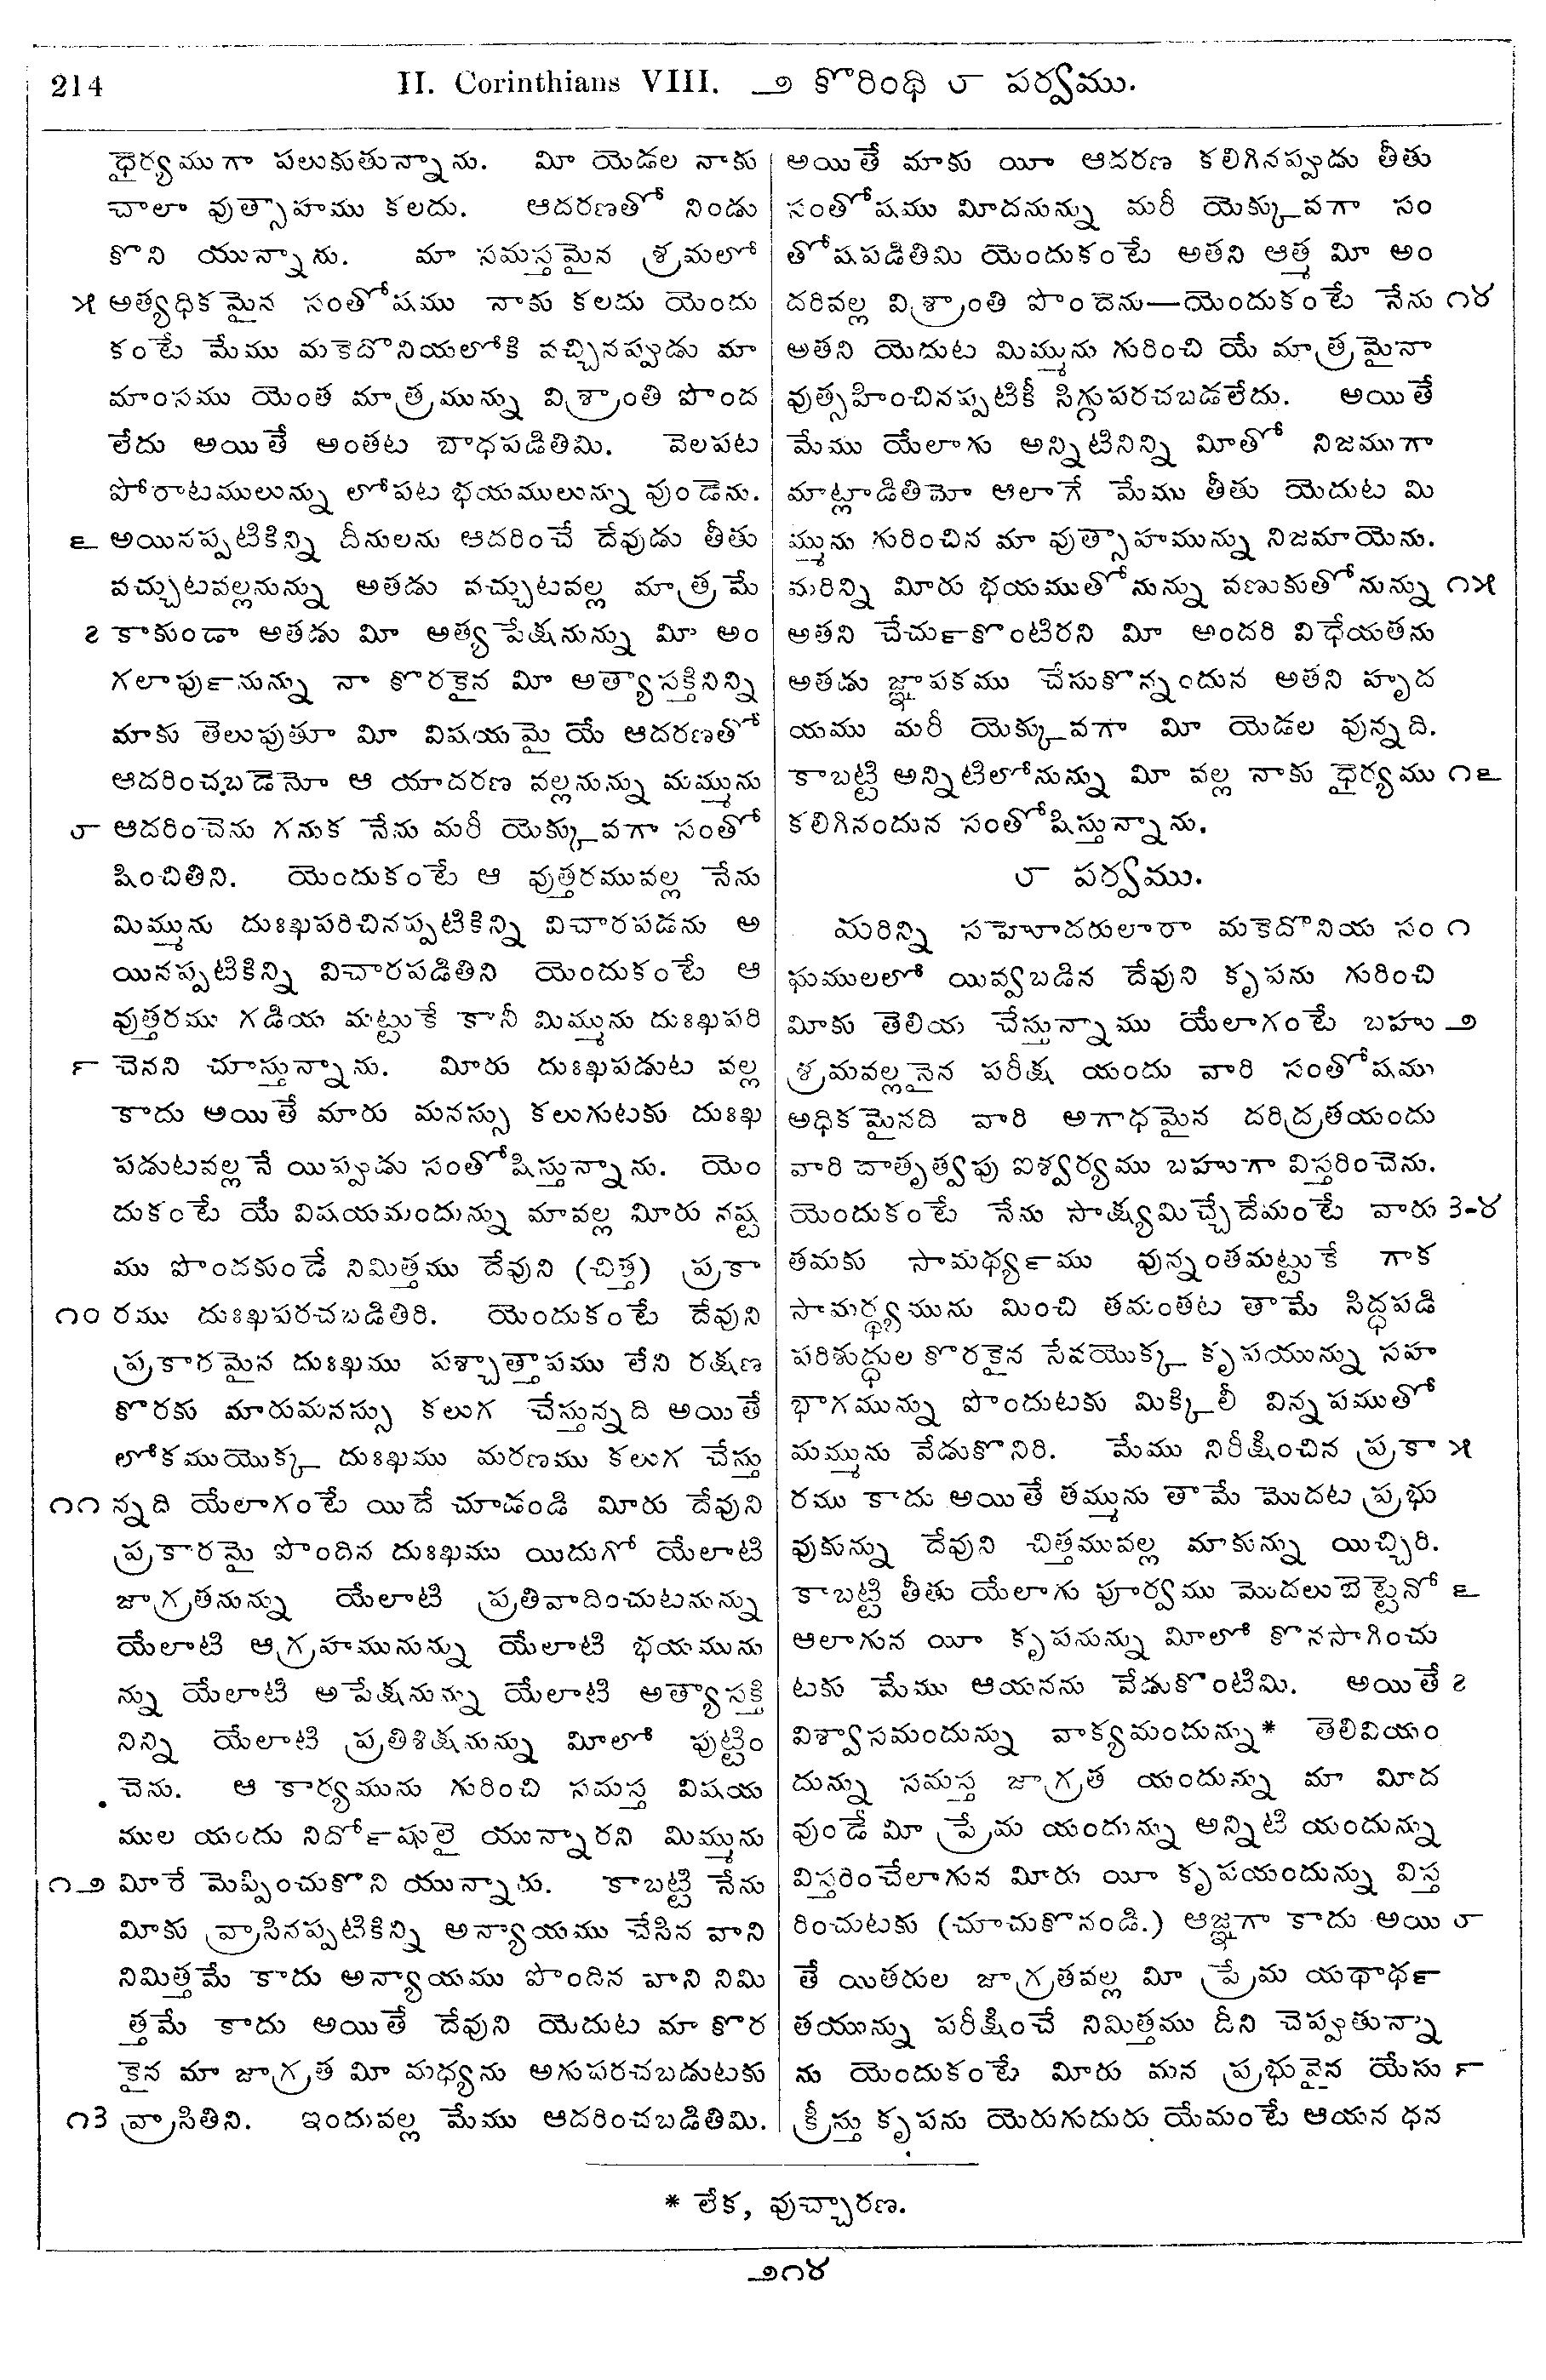 214 II. Corinthians VIII. ౨ కొరింథి ౮ పర్వము.
ధైర్యముగా పలుకుతున్నాను. మీ యెడల నాకు
చాలా వుత్సాహము కలదు. ఆదరణతో నిండు
కొని యున్నాను. మా సమస్తమైన శ్రమలో
౫ అత్యధికమైన సంతోషము నాకు కలదు యెందు
కంటే మేము మకెదొనియలోకి వచ్చినప్పుడు మా
మాంసము యెంత మాత్రమున్ను విశ్రాంతి పొంద
లేదు అయితే అంతట బాధపడితిమి. వెలపట
పోరాటములున్ను లోపట భయములున్ను వుండెను.
౬ అయినప్పటికిన్ని దీనులను ఆదరించే దేవుడు తీతు
వచ్చుటవల్లనున్ను అతడు వచ్చుటవల్ల మాత్రమే
౭ కాకుండా అతడు మీ అత్యపేక్షనున్ను మీ అం
గలాపుూనున్ను నా కొరకైన మీ అత్యాసక్తినిన్ని
మాకు తెలుపుతూ మీ విషయమై యే ఆదరణతో
ఆదరించబడెనో ఆ యాదరణ వల్లనున్ను మమ్మును
౮ ఆదరించెను గనుక నేను మరీ యెక్కువగా సంతో
షించితిని. యెందుకంటే ఆ వుత్తరమువల్ల నేను
మిమ్మును దుఃఖపరిచినప్పటికిన్ని విచారపడను అ
యినప్పటికిన్ని విచారపడితిని యెందుకంటే ఆ
వుత్తరము గడియ మట్టుకే కానీ మిమ్మును దుఃఖపరి
౯ చెనని చూస్తున్నాను. మీరు దుఃఖపడుట వల్ల
కాదు అయితే మారు మనస్సు కలుగుటకు దుఃఖ
పడుటవల్లనే యిప్పుడు సంతోషిస్తున్నాను. యెం
దుకంటే యే విషయమందున్ను మావల్ల మీరు నష్ట
ము పొందకుండే నిమిత్తము దేవుని (చిత్త) ప్రకా
౧౦ రము దుఃఖపరచబడితిరి. యెందుకంటే దేవుని
ప్రకారమైన దుఃఖము పశ్చాత్తాపము లేని రక్షణ
కొరకు మారుమనస్సు కలుగ చేస్తున్నది అయితే
లోకముయొక్క దుఃఖము మరణము కలుగ చేస్తు
౧౧ న్నది యేలాగంటే యిదే చూడండి మీరు దేవుని
ప్రకారమై పొందిన దుఃఖము యిదుగో యేలాటి
జాగ్రతనున్ను యేలాటి ప్రతివాదించుటనున్ను
యేలాటి ఆగ్రహమునున్ను యేలాటి భయమును
న్ను యేలాటి అపేక్షనున్ను యేలాటి అత్యాసక్తి
నిన్ని యేలాటి ప్రతిశిక్షనున్ను మీలో పుట్టిం
చెను. ఆ కార్యమును గురించి సమస్త విషయ
ముల యందు నిదో౯షులై యున్నారని మిమ్మును
౧౨ మీరే మెప్పించుకొని యున్నారు. కాబట్టి నేను
మీకు వ్రాసినప్పటికిన్ని అన్యాయము చేసిన వాని
నిమిత్తమే కాదు అన్యాయము పొందిన వాని నిమి
త్తమే కాదు అయితే దేవుని యెదుట మా కొర
కైన మా జాగ్రత మీ మధ్యను అగుపరచబడుటకు
౧౩ వ్రాసితిని. ఇందువల్ల మేము ఆదరించబడితిమి.
అయితే మాకు యీ ఆదరణ కలిగినప్పుడు తీతు
సంతోషము మీదనున్ను మరీ యెక్కువగా సం
తోషపడితిమి యెందుకంటే అతని ఆత్మ మీ అం
దరివల్ల విశ్రాంతి పొందెను—యెందుకంటే నేను ౧౪
అతని యెదుట మిమ్మును గురించి యే మాత్రమైనా
వుత్సహించినప్పటికీ సిగ్గుపరచబడలేదు. అయితే
మేము యేలాగు అన్నిటినిన్ని మీతో నిజముగా
మాట్లాడితిమో ఆలాగే మేము తీతు యెదుట మి
మ్మును గురించిన మా వుత్సాహమున్ను నిజమాయెను.
మరిన్ని మీరు భయముతోనున్ను వణుకుతోనున్ను ౧౫
అతని చేచు౯కొంటిరని మీ అందరి విధేయతను
అతడు జ్ఞాపకము చేసుకొన్నందున అతని హృద
యము మరీ యెక్కువగా మీ యెడల వున్నది.
కాబట్టి అన్నిటిలోనున్ను మీ వల్ల నాకు ధైర్యము ౧౬
కలిగినందున సంతోషిస్తున్నాను.
౮ పర్వము.
మరిన్ని సహోదరులారా మకెదొనియ సం ౧
ఘములలో యివ్వబడిన దేవుని కృపను గురించి
మీకు తెలియ చేస్తున్నాము యేలాగంటే బహు ౨
శ్రమవల్లనైన పరీక్ష యందు వారి సంతోషము
అధికమైనది వారి అగాధమైన దరిద్రతయందు
వారి దాతృత్వపు ఐశ్వర్యము బహుగా విస్తరించెను.
యెందుకంటే నేను సాక్ష్యమిచ్చేదేమంటే వారు ౩-౪
తమకు సామధ్య౯ము వున్నంతమట్టుకే గాక
సామర్థ్యమును మించి తమంతట తామే సిద్ధపడి
పరిశుద్ధుల కొరకైన సేవయొక్క కృపయున్ను సహ
భాగమున్ను పొందుటకు మిక్కిలీ విన్నపముతో
మమ్మును వేడుకొనిరి. మేము నిరీక్షించిన ప్రకా ౫
రము కాదు అయితే తమ్మును తామే మొదట ప్రభు
వుకున్ను దేవుని చిత్తమువల్ల మాకున్ను యిచ్చిరి.
కాబట్టి తీతు యేలాగు పూర్వము మొదలుబెట్టెనో ౬
ఆలాగున యీ కృపనున్ను మీలో కొనసాగించు
టకు మేము ఆయనను వేడుకొంటిమి. అయితే ౭
విశ్వాసమందున్ను వాక్యమందున్ను* తెలివియం
దున్ను సమస్త జాగ్రత యందున్ను మా మీద
వుండే మీ ప్రేమ యందున్ను అన్నిటి యందున్ను
విస్తరించేలాగున మీరు యీ కృపయందున్ను విస్త
రించుటకు (చూచుకొనండి.) ఆజ్ఞగా కాదు అయి ౮
తే యితరుల జాగ్రతవల్ల మీ ప్రేమ యథాథ౯
తయున్ను పరీక్షించే నిమిత్తము దీని చెప్పుతున్నా
ను యెందుకంటే మీరు మన ప్రభువైన యేసు ౯
క్రీస్తు కృపను యెరుగుదురు యేమంటే ఆయన ధన
* లేక, వుచ్చారణ.
౨౧౪